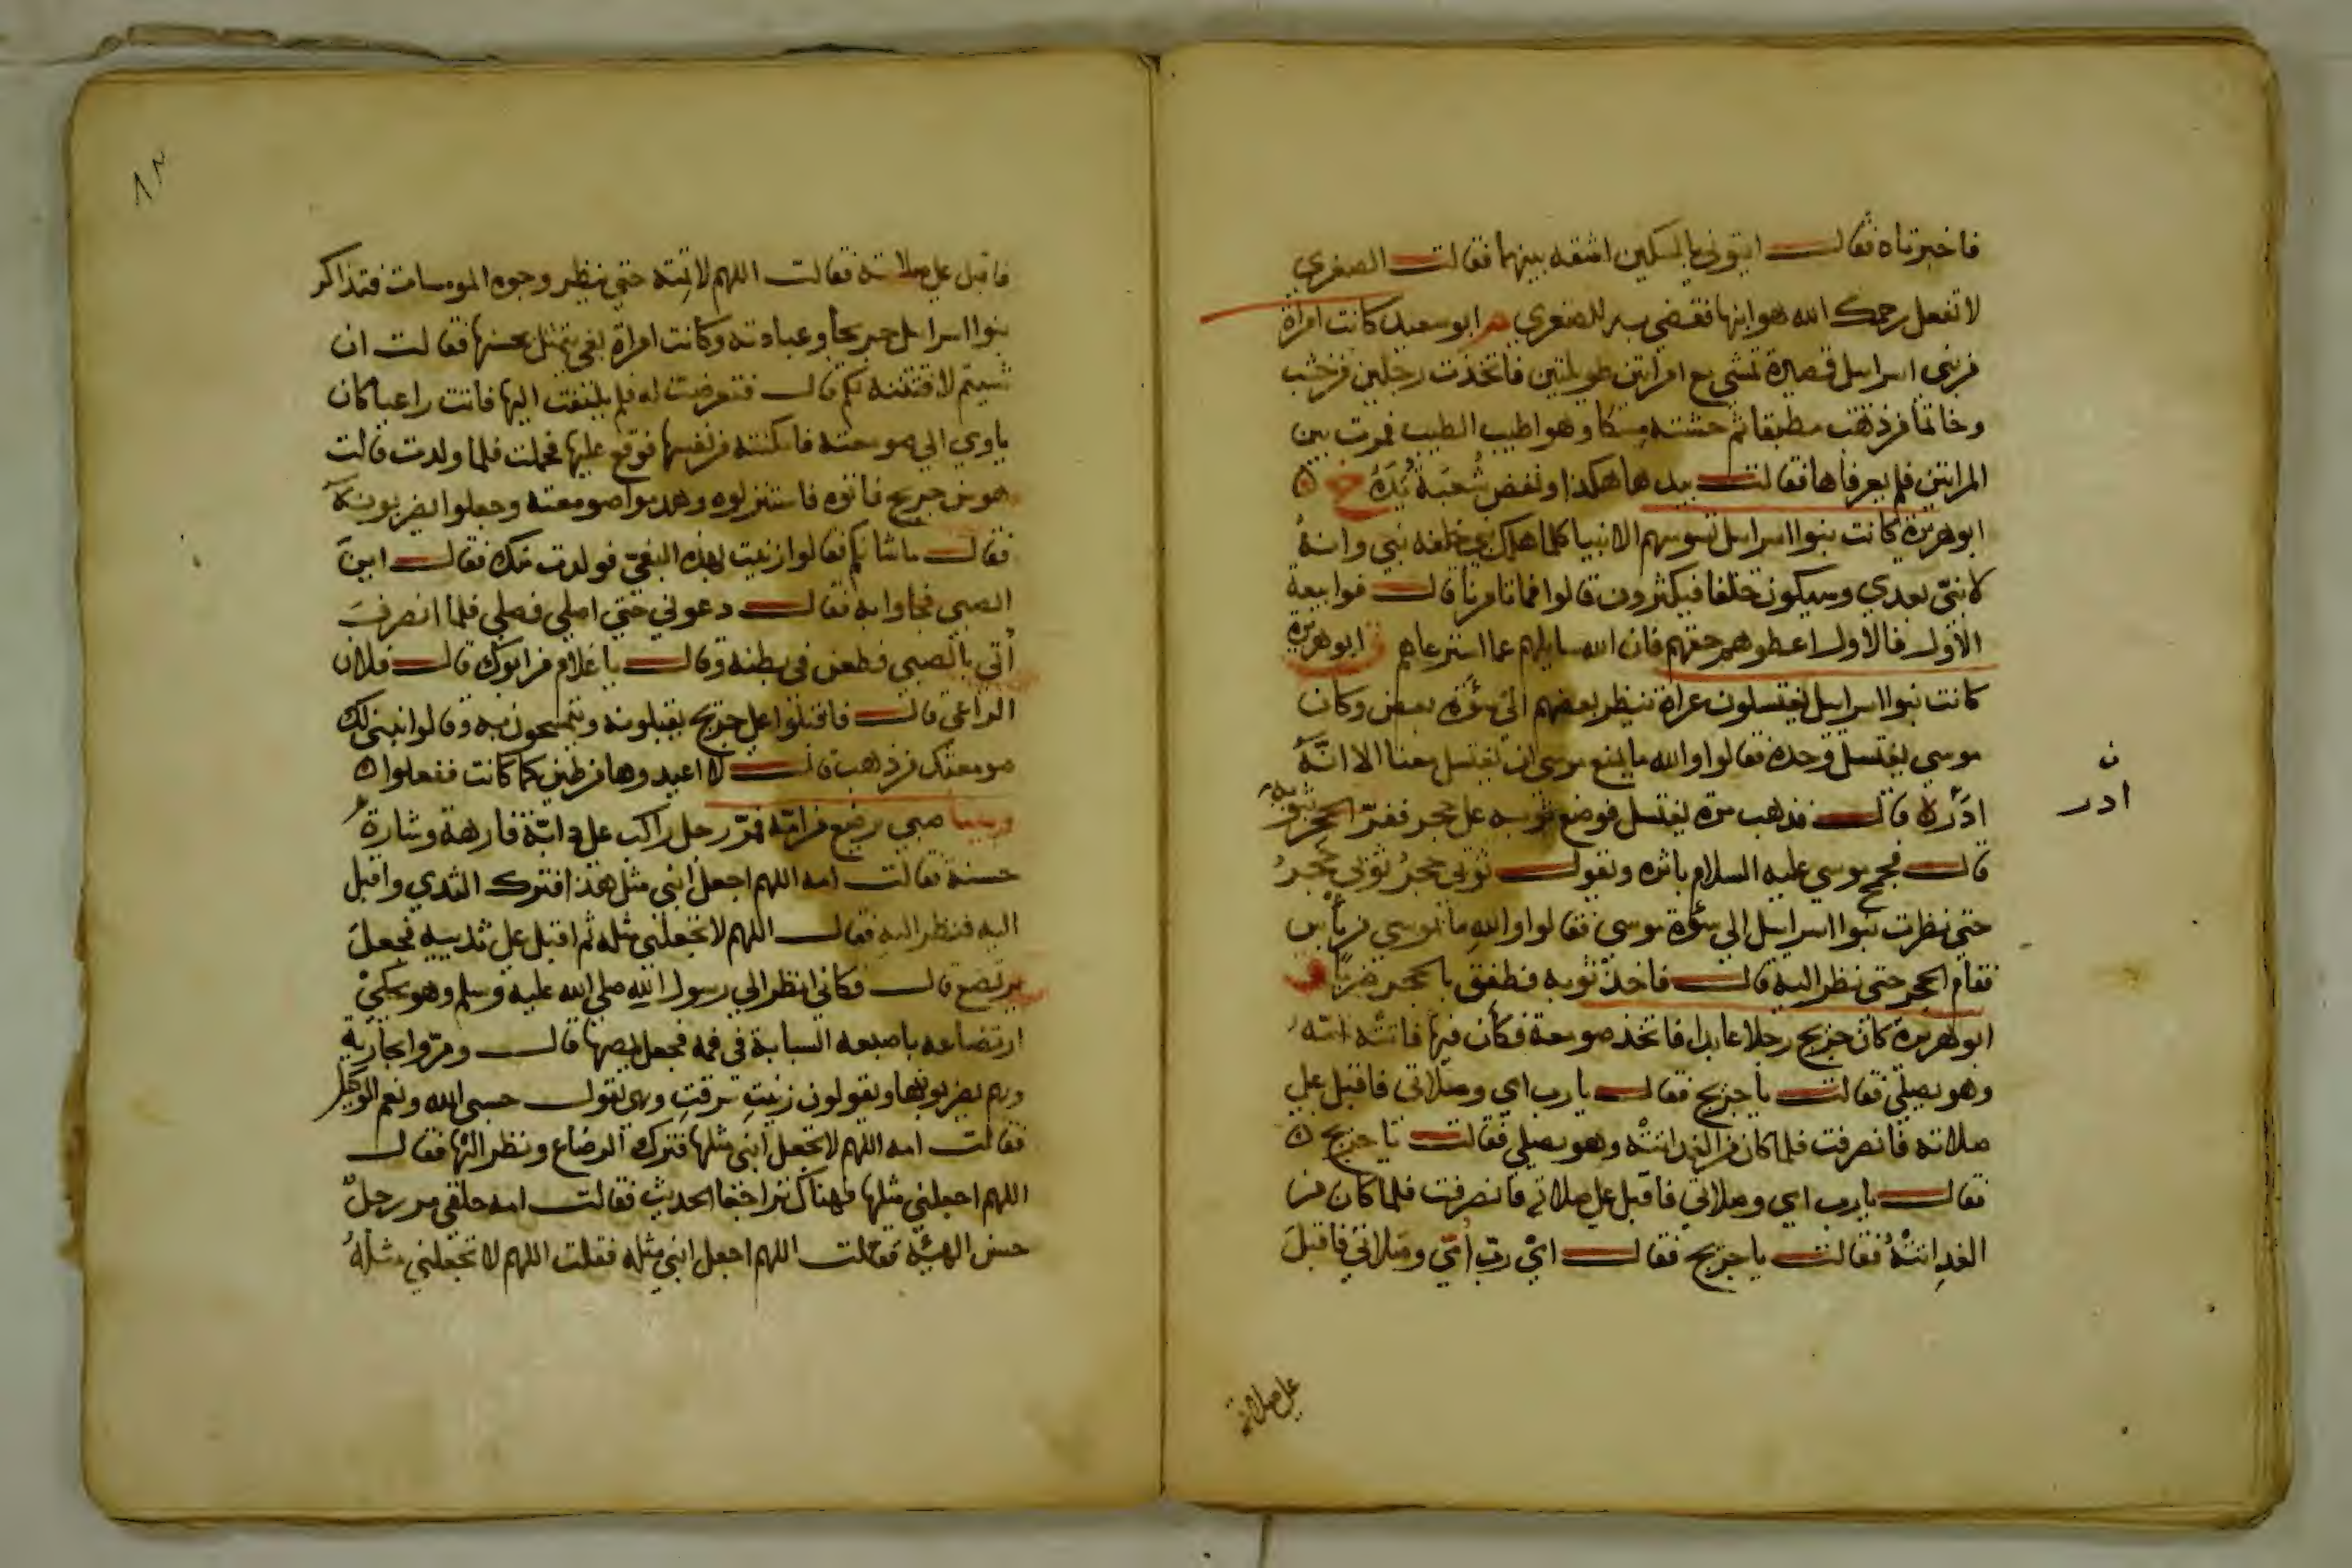 فاخبرتاه فقال ايتوني بالسكين اشقه بينهما فقالت الصغري
لا تفعل رحمك الله هو ابنها فقضي به للصغري م ابو سعيد كانت امراة
من بني اسرايل قصيرة تمشي مع امراتين طويلتين فاتخذت رجلين من خشب
وخاتما من ذهب مطبقا ثم حشته مسكا وهو اطيب الطيب فمرت بين
المراتين فلم يعرفاها فقالت بيدها هكذا ونفض شعبة يده خ ه
ابو هريرة كانت بنوا اسرايل تسوسهم الانبيا كلما هلك نبي خلفه نبي وانه
لا نبي بعدي وسيكون خلفا فيكثرون قالوا فما تامرنا قال فوا ببيعة
الاول فالاول اعطوهم حقهم فان الله سايلهم عما استرعاهم ق ابو هريرة
كانت بنوا اسرايل يغتسلون عراة ينظر بعضهم الي سوءة بعض وكان
موسي يغتسل وحده فقالوا والله ما يمنع موسي ان يغتسل معنا الا انه
ن
ادر
ادره قال فذهب مرة يغتسل فوضع ثوبه علي حجر ففر الحجر بثوبه
قال فجمح موسي عليه السلام باثره ويقول ثوبي حجر ثوبي حجر
حتي نظرت بنوا اسرايل الي سوءة موسي فقالوا والله ما بموسي من باس
فقام الحجر حتي نظر اليه قال فاخذ ثوبه فطفق بالحجر ضربا ق
ابو هريرة كان جريج رجلا عابدا فاتخذ صومعة فكان فيها فاتته امه
وهو يصلي فقالت يا جريج فقال يا رب امي وصلاتي فاقبل علي
صلاته فانصرفت فلما كان من الغد اتته وهو يصلي فقالت يا جريج ه
فقال يا رب امي وصلاتي فاقبل علي صلاته فانصرفت فلما كان من
الغد اتته فقالت يا جريج فقال اي رب امي وصلاتي فاقبل
علي صلاته
٨٢
فاقبل علي صلاته فقالت اللهم لا تمته حتي ينظر وجوه المومسات فتذاكر
بنوا اسرايل جريجا وعبادته وكانت امراة بغي يتمثل بحسنها فقالت ان
شيتم لافتننه لكم قال فتعرضت له فلم يلتفت اليها فاتت راعيا كان
ياوي الي صومعته فامكنته من نفسها فوقع عليها فحملت فلما ولدت قالت
هو من جريج فاتوه فاستنزلوه وهدموا صومعته وجعلوا يضربونه
فقال ما شانكم فقالوا زنيت بهذه البغي فولدت منك فقال اين
الصبي فجاوا به فقال دعوني حتي اصلي فصلي فلما انصرف
أتي بالصبي فطعن في بطنه وقال يا غلام من ابوك قال فلان
الراعي قال فاقبلوا علي جريج يقبلونه ويتمسحون به وقالوا نبني لك
صومعتك من ذهب قال لا اعيدوها من طين كما كانت ففعلوا ه
وبينا صبي يرضع من امه فمر رجل راكب علي دابة فارهة وشارة
حسنة فقالت امه اللهم اجعل ابني مثل هذا فترك الثدي واقبل
اليه فنظر اليه فقال اللهم لا تجعلني مثله ثم اقبل علي ثدييه فجعل
يرتضع قال فكاني انظر الي رسول الله صلي الله عليه وسلم وهو يحكي
ارتضاعه باصبعه السبابة في فمه فجعل يمصها قال ومروا بجارية
وهم يضربونها ويقولون زنيت سرقت وهي تقول حسبي الله ونعم الوكيل
فقالت امه اللهم لا تجعل ابني مثلها فترك الرضاع ونظر اليها فقال
اللهم اجعلني مثلها فهناك تراجعا الحديث فقالت امه حلقي مر رجل
حسن الهيئة فقلت اللهم اجعل ابني مثله فقلت اللهم لا تجعلني مثله